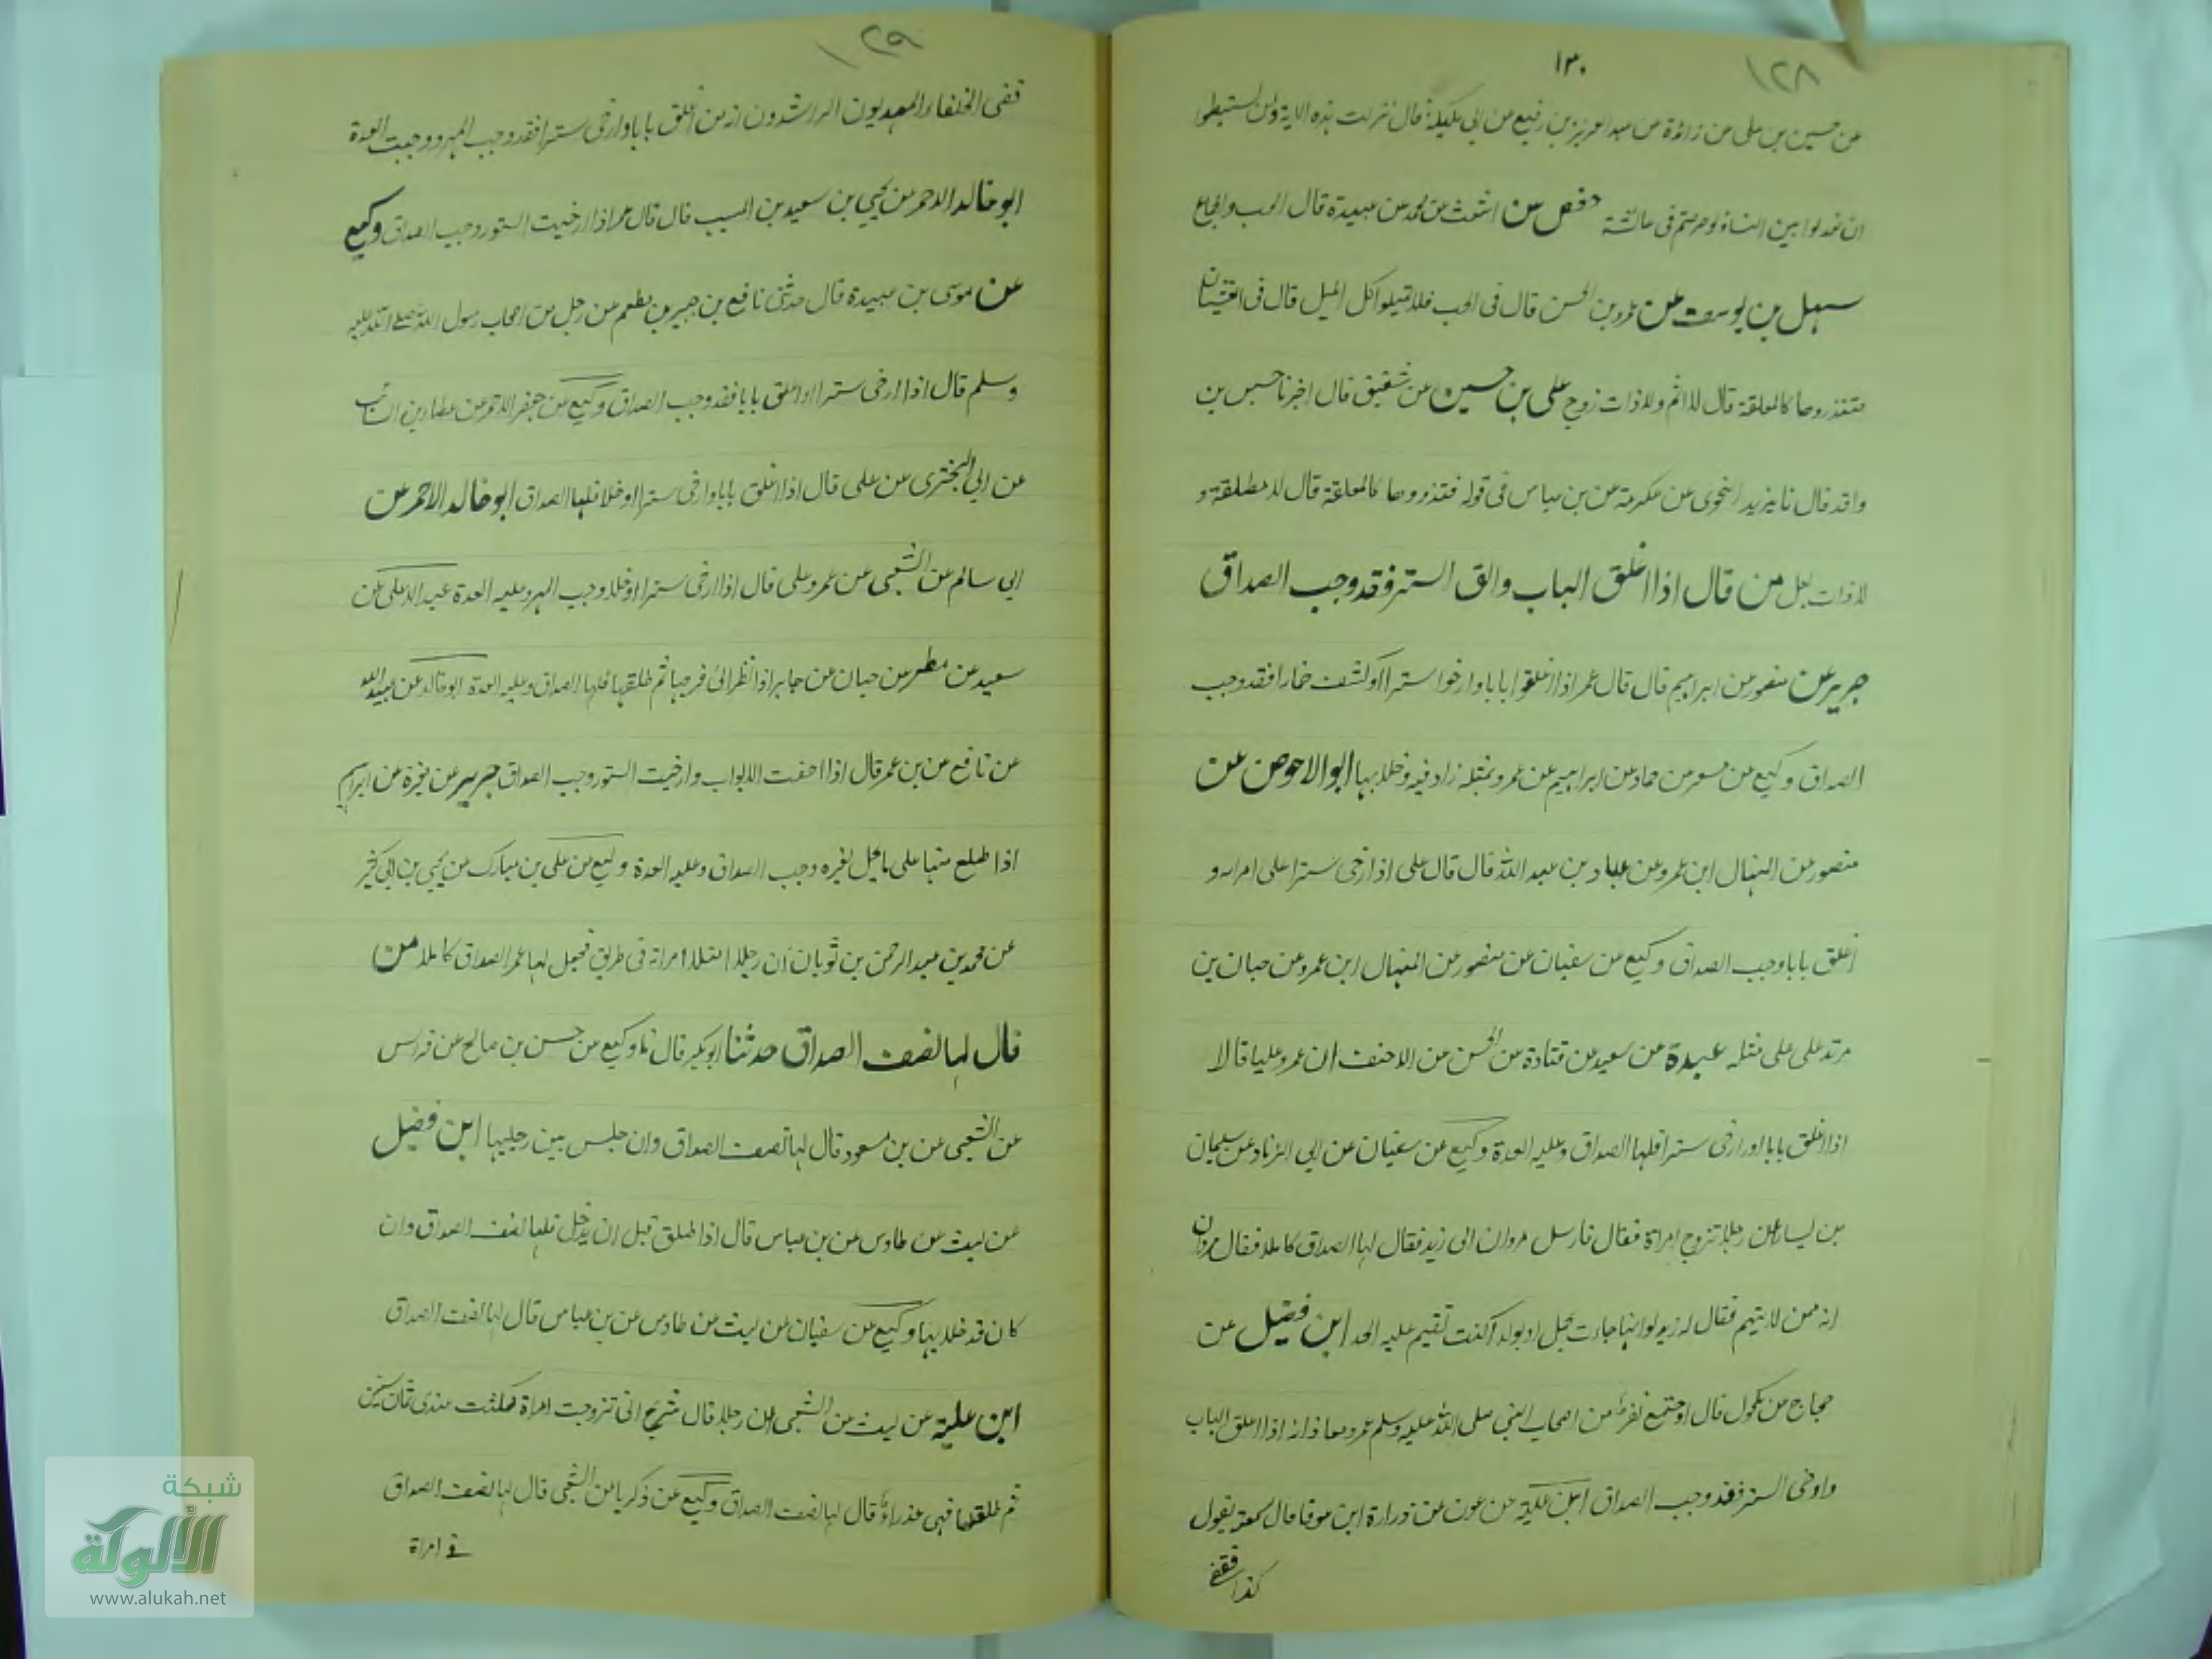 ١٢٨
١٣٠
عن حسين بن علي عن زائدة عن عبد العزيز بن رفيع عن ابي مليكة قال نزلت هذه الاية ولن تستطيعوا
ان تعدلوا بين النساء ولو حرصتم في عائشة حفص عن اشعث عن محمد عن عبيدة قال الحب والجماع
سهل بن يوسف عن عمرو بن الحسن قال في الحب فلا تميلوا كل الميل قال في الغشيان
فتذروها كالمعلقة قال لا ايم ولا ذات زوج علي بن حسين عن شقيق قال اخبرنا حسين بن
واقد قال نا يزيد النحوي عن عكرمة عن بن عباس في قوله فتذروها كالمعلقة قال لا مطلقة و
لا ذات بعل من قال اذا اغلق الباب والق الستر فقد وجب الصداق
جرير عن منصور عن ابراهيم قال قال عمر اذا اغلقوا بابا وارخوا سترا او كشف خمارا فقد وجب
الصداق وكيع عن مسعر عن حماد عن ابراهيم عن عمر وبمثله زاد فيه وخلا بها ابو الاحوص عن
منصور عن المنهال ابن عمرو عن عباد بن عبد الله قال قال علي اذا ارخى سترا على امراته و
اغلق بابا وجب الصداق وكيع عن سفيان عن منصور عن المنهال ابن عمرو عن حبان بن
مرتد علي على مثله عبدة عن سعيد عن قتادة عن الحسن عن الاحنف ان عمر وعليا قالا
اذا اغلق بابا او ارخى سترا فلها الصداق وعليه العدة وكيع عن سفيان عن ابي الزناد عن سليمان
بن يسار عن رجلا تزوج امراة فقال فارسل مروان الى زيد فقال لها الصداق كاملا فقال مروان
انه ممن لا يتهم فقال له زيد لو انها جاءت بحبل او بولد اكنت تقيم عليه الحد ابن فضيل عن
حجاج عن مكحول قال اوجتمع نفر من اصحاب النبي صلى الله عليه وسلم عمر ومعاذ انه اذا اغلق الباب
وارخى الستر فقد وجب الصداق ابن علية عن عون عن زرارة ابن عوفا قال سمعته يقول
كذا
فقض
١٢٩
قضى الخلفاء المهديون الراشدون انه من اغلق بابا وارخى سترا فقد وجب المهر ووجبت العدة
ابو خالد الاحمر عن يحيى بن سعيد بن المسيب قال قال عمر اذا ارخيت الستور وجب الصداق وكيع
عن موسى بن عبيدة قال حدثني نافع بن جبير بن مطعم عن رجل من اصحاب رسول الله صلى الله عليه
وسلم قال اذا ارخى سترا او اغلق بابا فقد وجب الصداق وكيع عن جعفر الاحمر عن عطاء بن السائب
عن ابي البختري عن علي قال اذا اغلق بابا وارخى سترا او خلا فلها الصداق ابو خالد الاحمر عن
ابي سالم عن الشعبي عن عمر وعلي قال اذا ارخى سترا او خلا وجب المهر وعليه العدة عبد الاعلى عن
سعيد عن مطر عن حبان عن جابر اذا نظر الى فرجها ثم طلقها فلها الصداق وعليه العدة ابو خالد عن عبيد الله
عن نافع عن بن عمر قال اذا اجفت الابواب وارخيت الستور وجب الصداق جرير عن مغيرة عن ابراهيم
اذا طلع منها على ما يحل لغيره وجب الصداق وعليه العدة وكيع عن علي بن مبارك عن يحيى بن ابي كثير
عن محمد بن عبد الرحمن بن ثوبان ان رجلا اختلا امراة في طريق فجعل لها عمر الصداق كاملا من
قال لها نصف الصداق حدثنا ابو بكر قال نا وكيع عن حسن بن صالح عن فراس
عن الشعبي عن بن مسعود قال لها نصف الصداق وان جلس بين رجليها ابن فضيل
عن ليث عن طاوس عن بن عباس قال اذا طلق قبل ان يدخل فلها نصف الصداق وان
كان قد خلا بها وكيع عن سفيان عن ليث عن طاوس عن بن عباس قال لها نصف الصداق
ابن علية عن ليث عن الشعبي ان رجلا قال شريح اني تزوجت امراة فمكثت عندي ثمان سنين
ثم طلقها فهي عذراء قال لها نصف الصداق وكيع عن زكريا عن الشعبي قال لها نصف الصداق
في امراة
شبكة
الألوكة
www.alukah.net